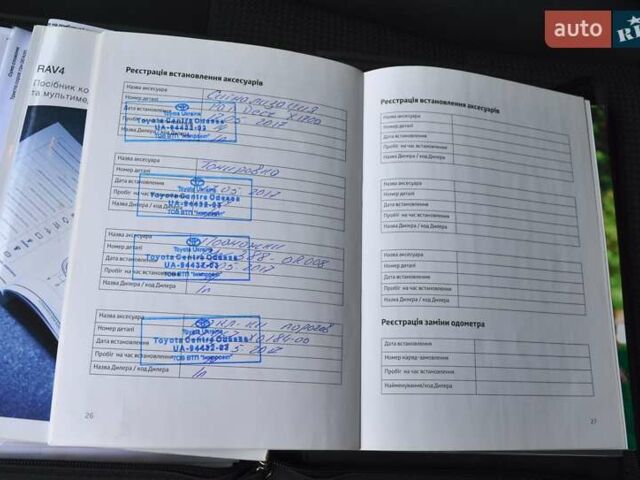 auto
RAV4
Посібник
та мультимед
Реєстрація встановлення аксесуарів
Назва аксесуара
Номер деталі
Дата встановлення
Пробіг на час встановлення
Назва Дилера / код Дилера
Сигнализация
2017
Toyota Ukraine
Toyota Centre Odessa
UA-94432-03
Назва аксесуара
Номер деталі
Дата встановлення
Пробіг на час встановлення
Назва Дилера / код Дилера
Тонировка
05 2017
Toyota Ukraine
Toyota Centre Odessa
UA-94432-03
Назва аксесуара
Номер деталі
Дата встановлення
Пробіг на час встановлення
Назва Дилера / код Дилера
05 2017
Toyota Ukraine
Toyota Centre Odessa
UA-94432-03
Назва аксесуара
Номер деталі
Дата встановлення
Пробіг на час встановлення
Назва Дилера / код Дилера
порогов
2017
Toyota Ukraine
Toyota Centre Odessa
UA-94432-03
26
Реєстрація встановлення аксесуарів
Назва аксесуара
Номер деталі
Дата встановлення
Пробіг на час встановлення
Назва Дилера / код Дилера
Назва аксесуара
Номер деталі
Дата встановлення
Пробіг на час встановлення
Назва Дилера / код Дилера
Назва аксесуара
Номер деталі
Дата встановлення
Пробіг на час встановлення
Назва Дилера / код Дилера
Реєстрація заміни одометра
Дата встановлення
Номер наряд-замовлення
Пробіг на час встановлення
Найменування/код Дилера
27